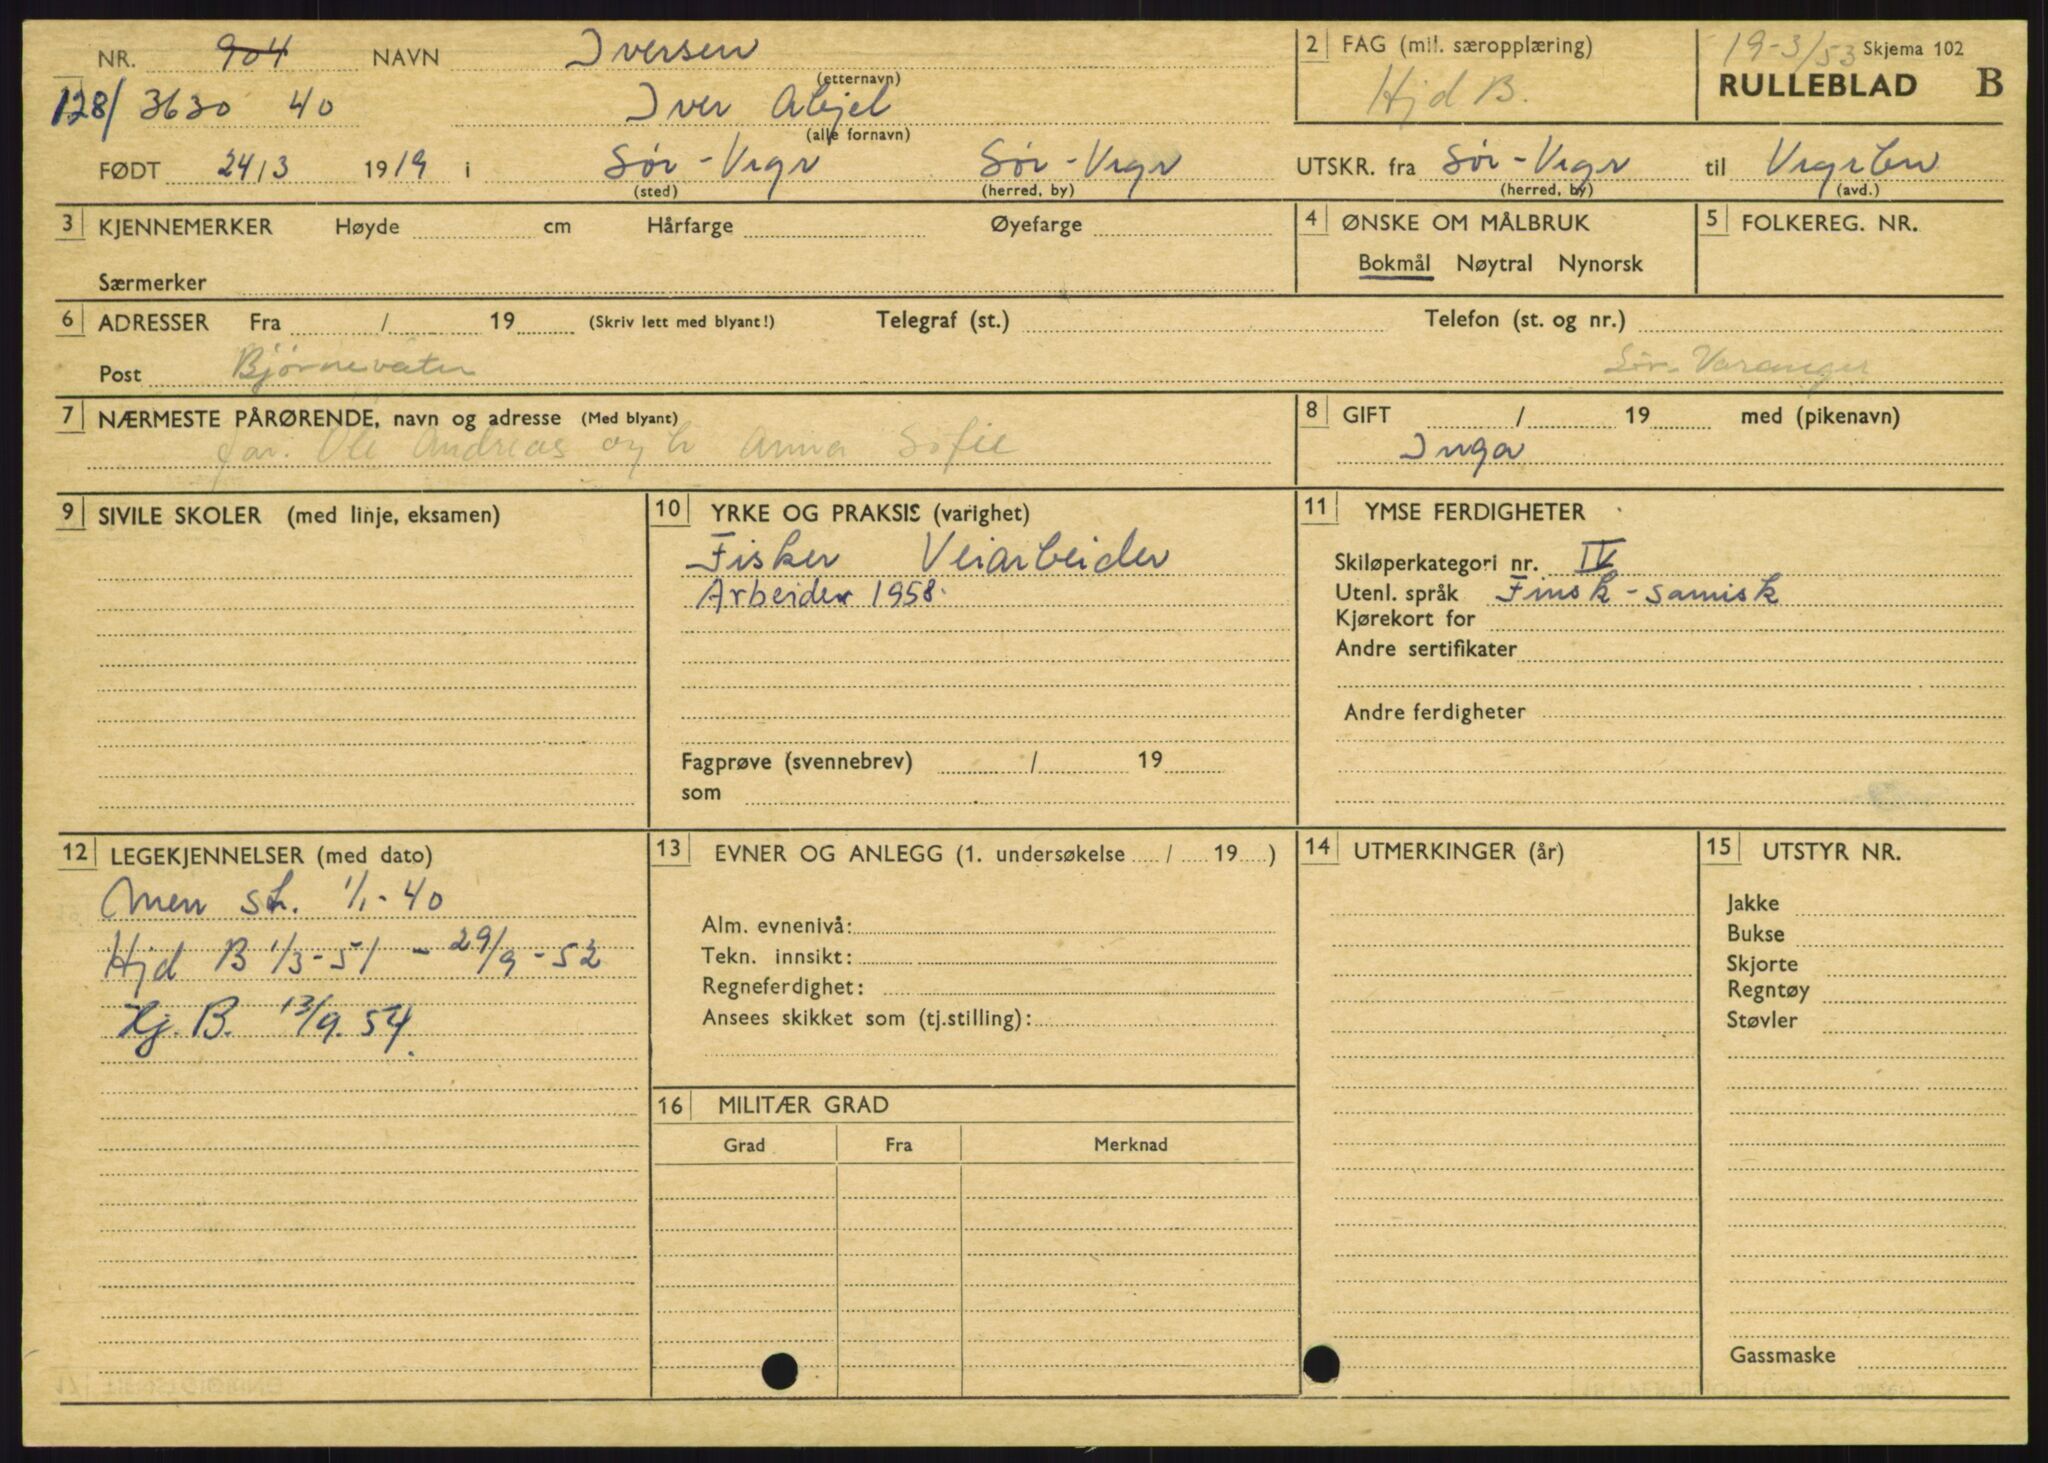 NR. 904 NAVN Iversen
(etternavn)
128/ 3630 40 Iver Abjel
(alle fornavn)
FØDT 24/3 1919 i Sør-Vrgr Sør-Vrgr
(sted) (herred, by)
2 FAG (mil. særopplæring)
Hjd B.
19-3/53 Skjema 102
RULLEBLAD B
UTSKR. fra Sør-Vrgr til Vrgrbn
(herred, by) (avd.)
3 KJENNEMERKER Høyde cm Hårfarge Øyefarge
Særmerker
4 ØNSKE OM MÅLBRUK
Bokmål Nøytral Nynorsk
5 FOLKEREG. NR.
6 ADRESSER Fra / 19 (Skriv lett med blyant!) Telegraf (st.) Telefon (st. og nr.)
Post Bjørnevatn Sør-Varanger
7 NÆRMESTE PÅRØRENDE, navn og adresse (Med blyant)
far. Ole Andreas og h Anna Sofie
8 GIFT / 19 med (pikenavn)
Inga
9 SIVILE SKOLER (med linje, eksamen)
10 YRKE OG PRAKSIS (varighet)
Fisker Veiarbeider
Arbeider 1958.
Fagprøve (svennebrev) / 19
som
11 YMSE FERDIGHETER
Skiløperkategori nr. IV
Utenl. språk Finsk-samisk
Kjørekort for
Andre sertifikater
Andre ferdigheter
12 LEGEKJENNELSER (med dato)
Men st. 1/1-40
Hjd B 1/3-51 - 29/9-52
Hj. B. 13/9. 54.
13 EVNER OG ANLEGG (1. undersøkelse / 19 )
Alm. evnenivå:
Tekn. innsikt:
Regneferdighet:
Ansees skikket som (tj.stilling):
14 UTMERKINGER (år)
15 UTSTYR NR.
Jakke
Bukse
Skjorte
Regntøy
Støvler
Gassmaske
16 MILITÆR GRAD
Grad Fra Merknad